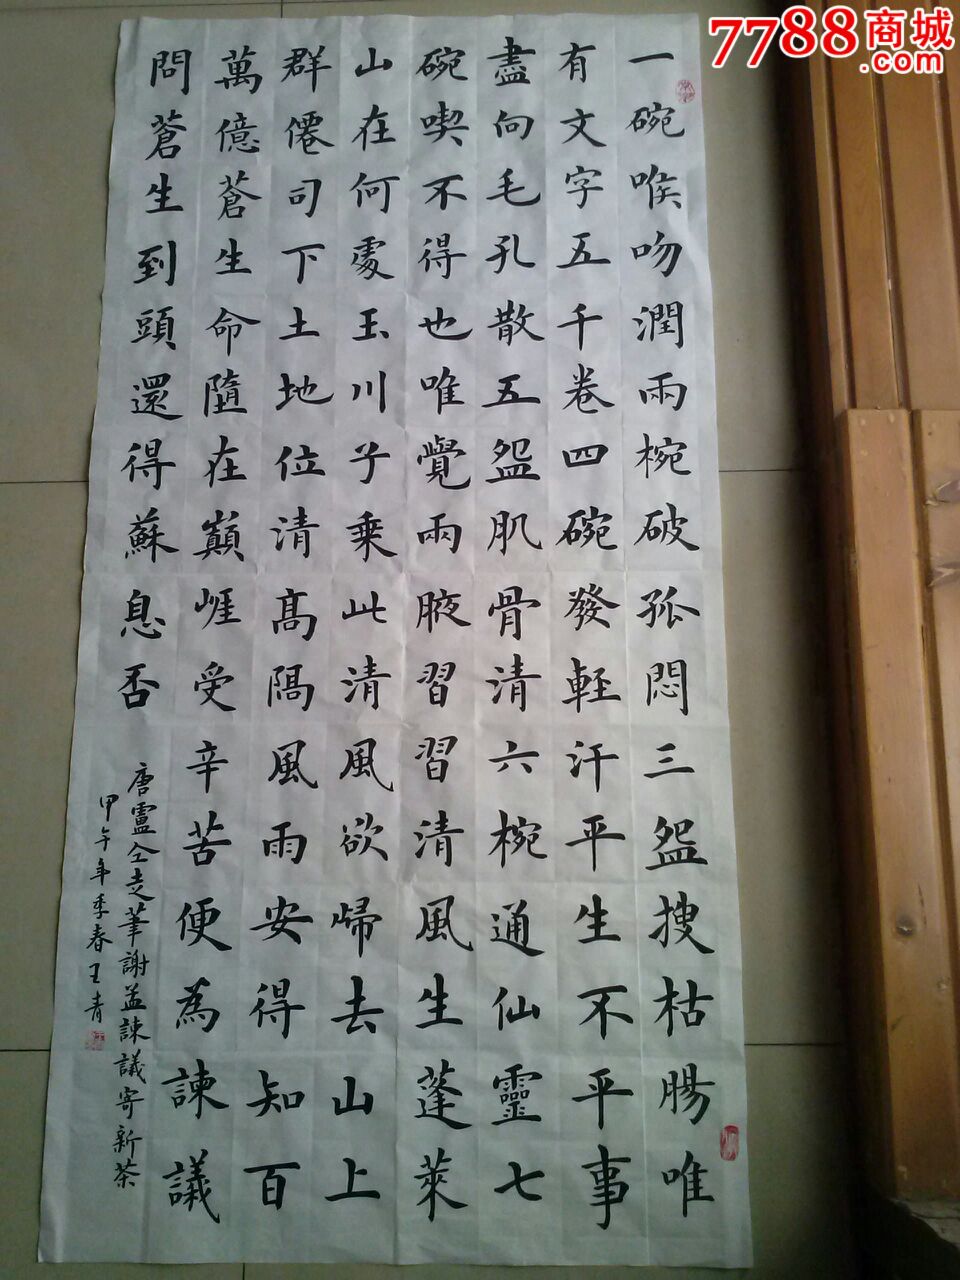 7788商城
.com
一碗喉吻潤兩椀破孤悶三盌搜枯腸唯
有文字五千卷四碗發輕汗平生不平事
盡向毛孔散五盌肌骨清六椀通仙靈七
碗喫不得也唯覺兩腋習習清風生蓬萊
山在何處玉川子乗此清風欲歸去山上
群僊司下土地位清髙隔風雨安得知百
萬億蒼生命隨在巔崕受辛苦便為諫議
問蒼生到頭還得蘇息否
唐盧仝走筆謝孟諫議寄新茶
甲午年季春王青